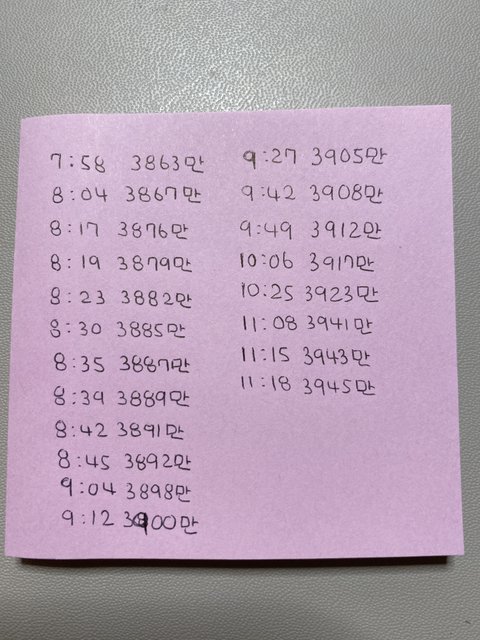 7:58 3863만
8:04 3867만
8:17 3876만
8:19 3879만
8:23 3882만
8:30 3885만
8:35 3887만
8:39 3889만
8:42 3891만
8:45 3892만
9:04 3898만
9:12 3900만
9:27 3905만
9:42 3908만
9:49 3912만
10:06 3917만
10:25 3923만
11:08 3941만
11:15 3943만
11:18 3945만